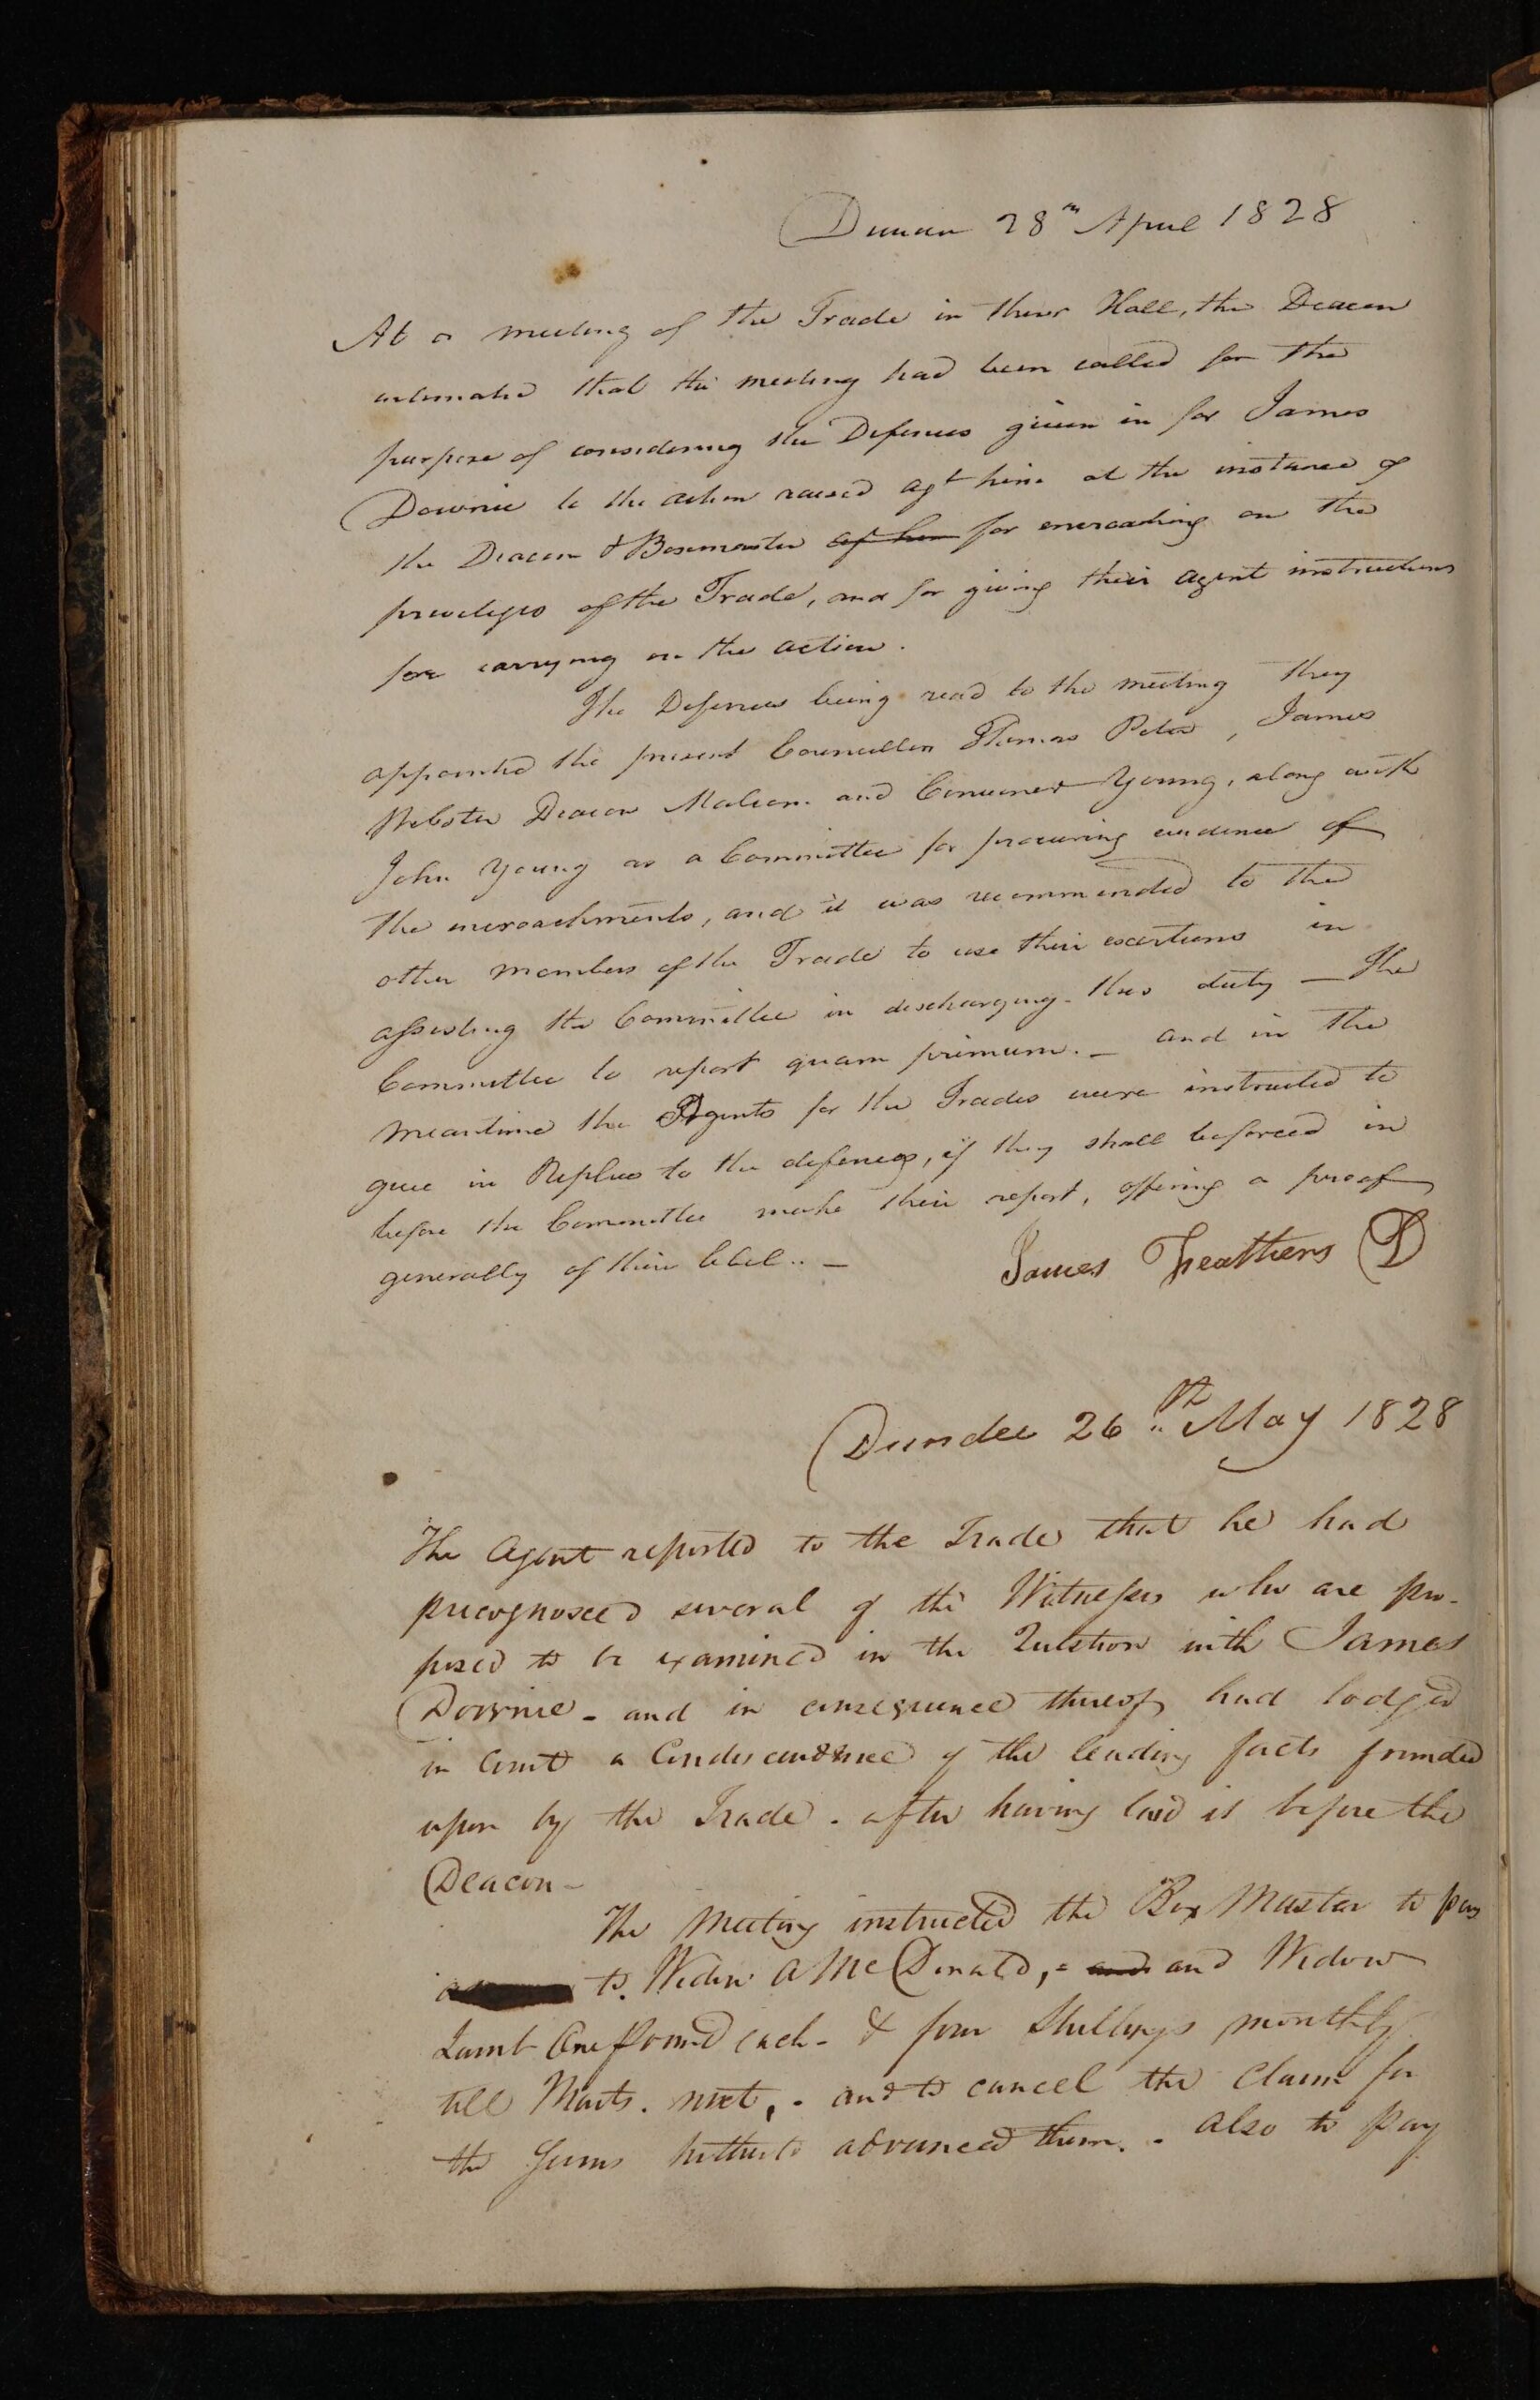 Dundee 28th April 1828
At a meeting of the Trade in their Hall, the Deacon
intimated that the meeting had been called for the
purpose of considering the Defences given in for James
Downie to the action raised agt him at the instance of
the Deacon & Boxmaster for encroaching on the
priveleges of the Trade, and for giving their agent instructions
for carrying on the action.
The Defences being read to the meeting they
appointed the present Councillor Thomas Peter, James
Webster Deacon and Convener Young, along with
John Young as a Committee for procuring evidence of
the encroachments, and it was recommended to the
other members of the Trade to use their exertions in
assisting the Committee in discharging this duty — The
Committee to report quam primum. — and in the
meantime the Agents for the Trades were instructed to
give in Replies to the defences, if they shall be forced in
before the Committee make their report, offering a proof
generally of their libel.. —
James Feathers D
Dundee 26th May 1828
The Agent reported to the Trade that he had
precognosced several of the Witnesses who are pro-
posed to be examined in the Question with James
Downie - and in consequence thereof had lodged
in Court a Condescendence of the leading facts founded
upon by the Trade - after having laid it before the
Deacon -
The Meeting instructed the Box Master to pay
to Widow A McDonald, - and and Widow
Lamb One Pound each - & four Shillings monthly
till Marts. next, - and to cancel the Claim for
the Sums hitherto advanced them. - also to pay